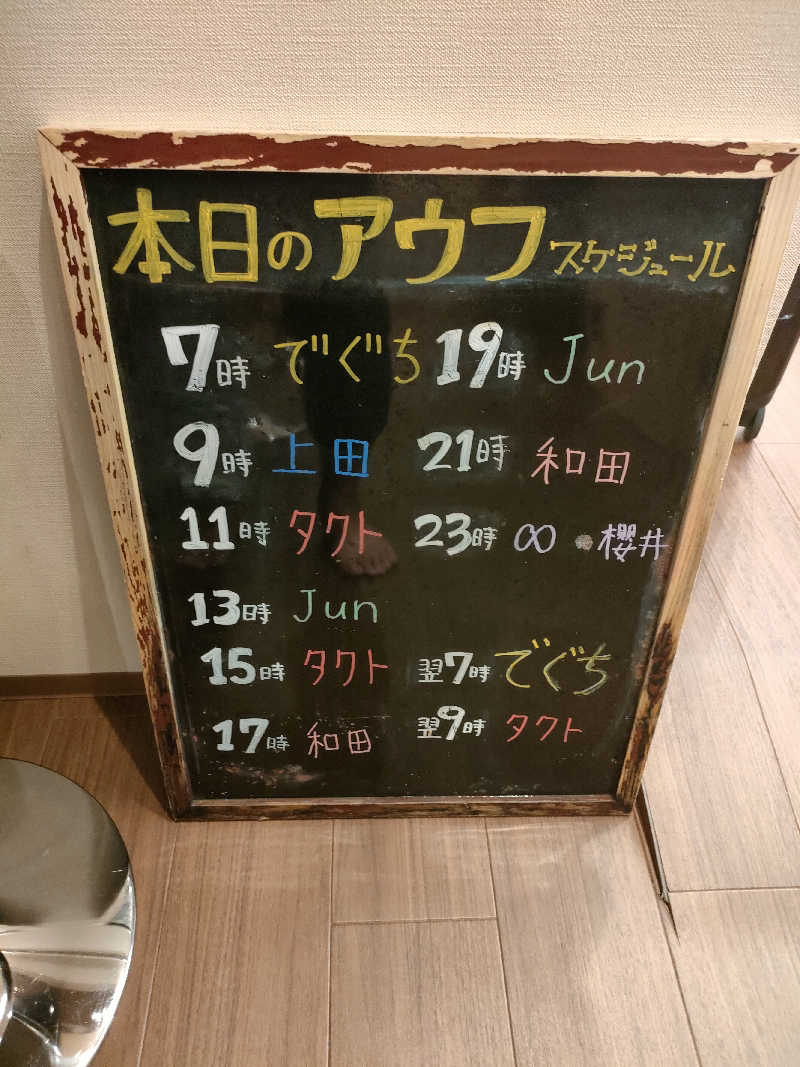 本日のアウフ スケジュール
7時 でぐち 19時 Jun
9時 上田 21時 和田
11時 タクト 23時 ∞・櫻井
13時 Jun
15時 タクト 翌7時 でぐち
17時 和田 翌9時 タクト